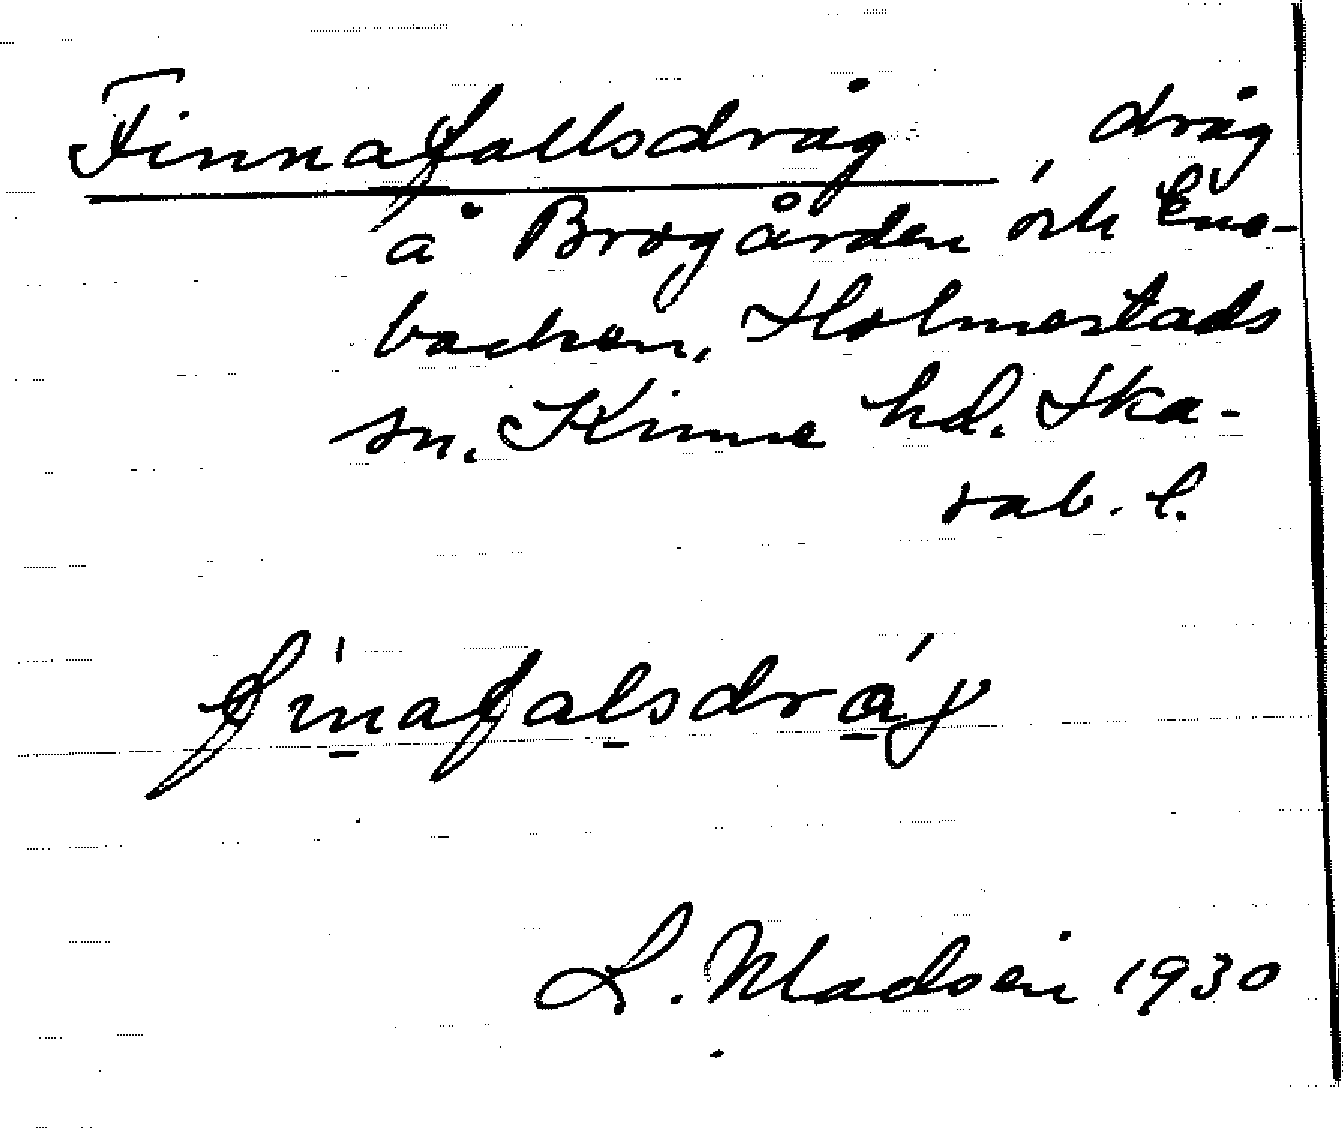 Finnafallsdråg, dråg
å Brogården och Ene-
backen, Holmestads
sn. Kinne hd. Ska-
rab. l.
fi'nafalsdrá̱γ
L. Madsén 1930